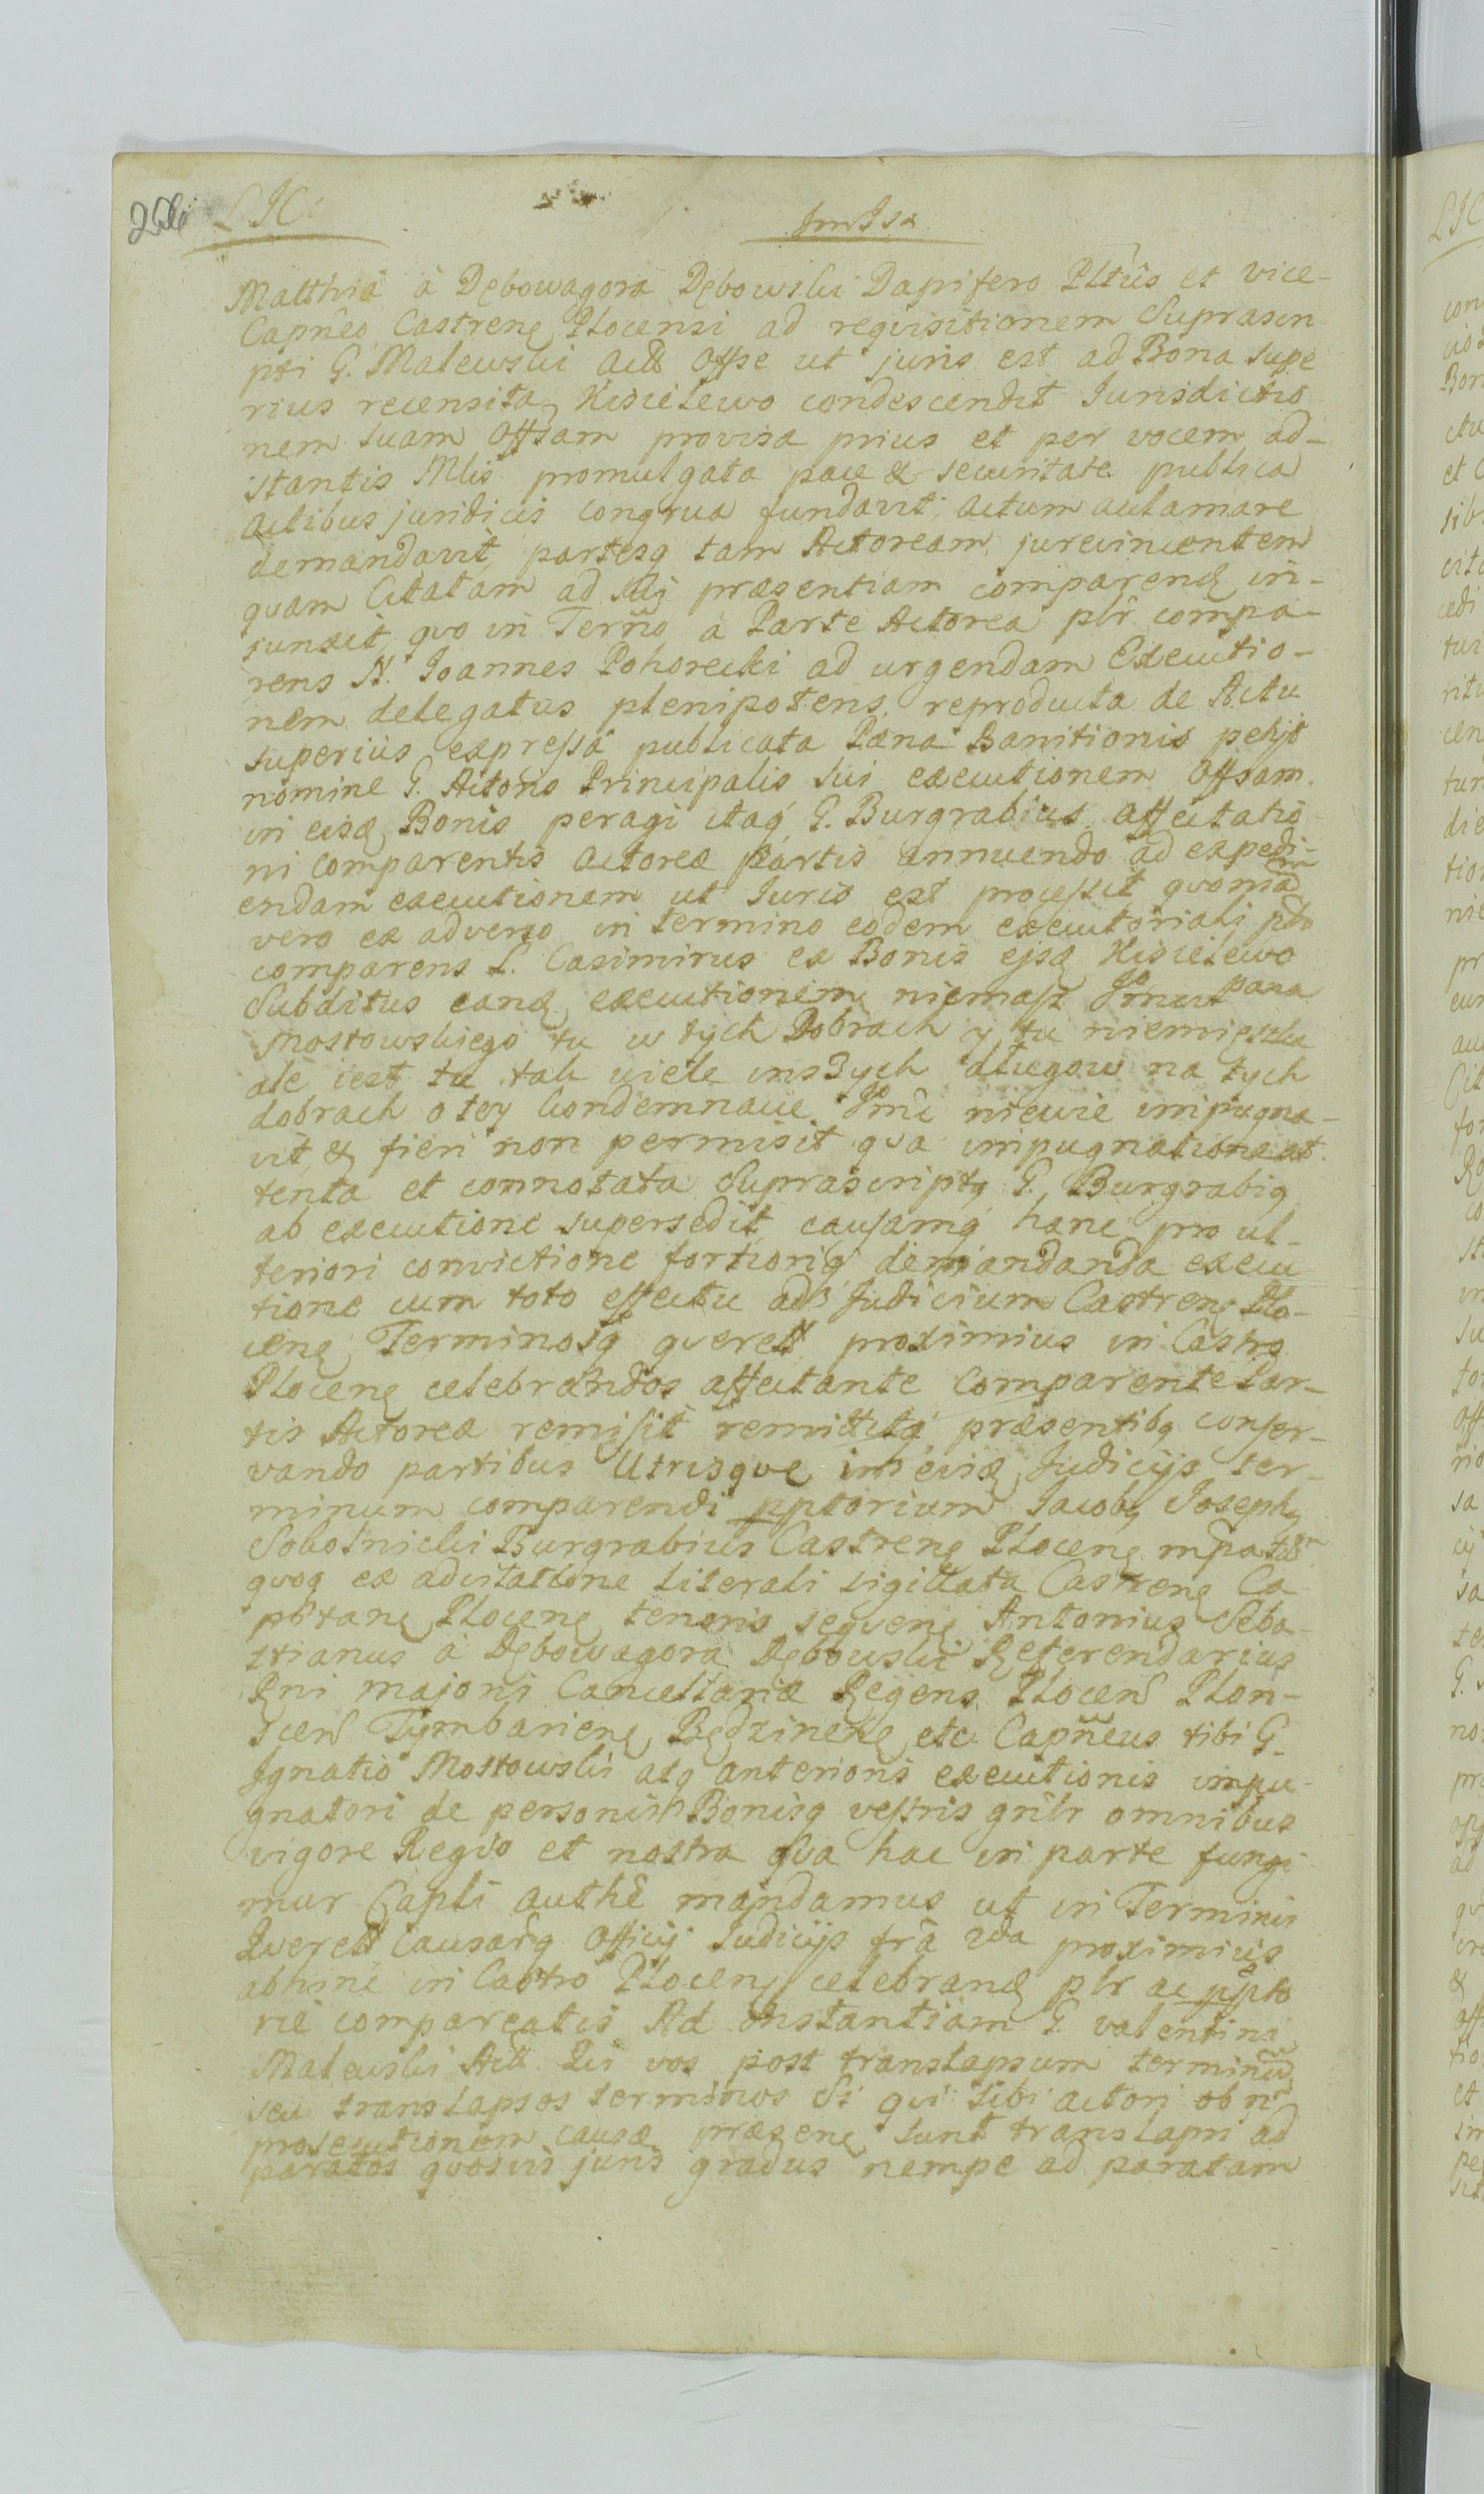 256 LJC
Matthia à Dębowagora Dębowski Dapifero Pltûs et vice-
Capn̄eo Castrens Plocensi ad reqvisitionem Suprascri
pti G. Malewski Act Offse ut juris est ad Bona Supe
rius recensita Kisielewo condescendit Iurisdictio
nem suam Offsam provisa prius et per vocem ad-
stantis Mlis promulgata pace & securitate publica
actibus juridicis congrua fundavit, actum actamare
demandavit, partesq tam Actoream jurevincentem
quam Citatam ad sui præsentiam comparend in-
junxit, qvo in Terñno à Parte Actorea plr compa-
rens N. Joannes Pohorecki ad urgendam Executio-
nem delegatus plenipotens reproducta de Actu
superius expressâ publicata Pæna Banitionis petijt
nomine G. Actoris Principalis sui executionem Offsam
in eisd Bonis peragi itaq G. Burgrabius affectatio
ni comparentis actoreæ partis annuendo ad expedi-
endam executionem ut Iuris est processit, qvoniam
vero ex adverso in termino eodem executoriali plr
comparens L. Casimirus ex Bonis ejsd Kisielewo
Subditus eand executionem niemasz Jmci Pana
Mostowskiego tu w tych Dobrach y tu niemięszka
ale iest tu tak wiele inszych długow na tych
dobrach o tey Condemnacie Jmć niewie impugna-
vit, & fieri non permisit qva impugnatione at
tenta et connotata Suprascripts G. Burgrabis
ab executione supersedit, causamq hanc pro ul-
teriori convictione fortiorig demandanda execu
tione cum toto effectu ad Judicium Castrens Plo-
cens Terminosq qverell proximius in Castro
Plocens celebrandos affectante Comparente Par-
tis Actoreæ remisit remittitq præsentibq conser-
vando partibus Utrisqve in eisd Judicijs ter-
minum comparendi pptorium Jacobs Josephs
Sobotnicki Burgrabius Castrens Plocens mp
qvoq ex adcitatione literali sigillata Castrens Ca
pitans Plocens tenoris seqvens Antonius Seba-
stianus à Dębowagora Dębowski Referendarius
Rni majoris Cancellariæ Regens Plocens Plon-
scens Tymbariens Będzinens etc. Capñeus tibi G.
Ignatio Mostowski atq anterioris executionis impu-
gnatori de personis Bonisq vestris gnlr omnibus
vigore Regio et nostra qva hac in parte fungi
mur Capli authê mandamus ut in Terminis
Qverell Causarq Officij Judicijs frâ 2da proximius
abhinc in Castro Plocens celebrand plr ac ppto
rie compareatis Ad Instantiam G. Valentini
Malewski Act. Qui vos post translapsum terminũ
seu translapsos terminos Si qvi sibi actori ob n
prosecutionem causæ præsens sunt translapsi ad
paratos qvosvis juris gradus nempe ad paratam